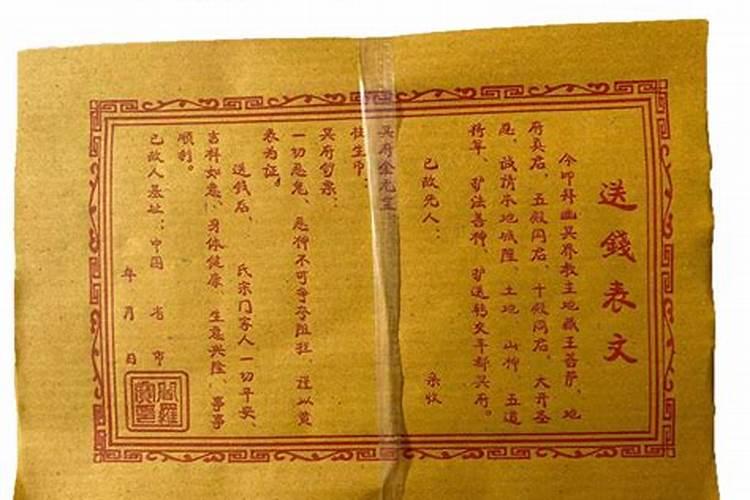 送錢表文
今叩拜幽冥界教主地藏王菩萨、地
府真君、五殿阎君、十殿阎君、大开圣
恩、诚请本地城隍、土地、山神、五道
将军、护法善神、护送转交丰都冥府。
已故先人： 亲收
冥府金元宝、
往生币、
冥府钞票：
一切恶鬼、恶神不可争夺阻拦，谨以黄
表为证。
送钱后、 氏宗门家人一切平安、
吉祥如意、身体健康、生意兴隆、事事
顺利。
已故人墓址：中国 省 市
年 月 日